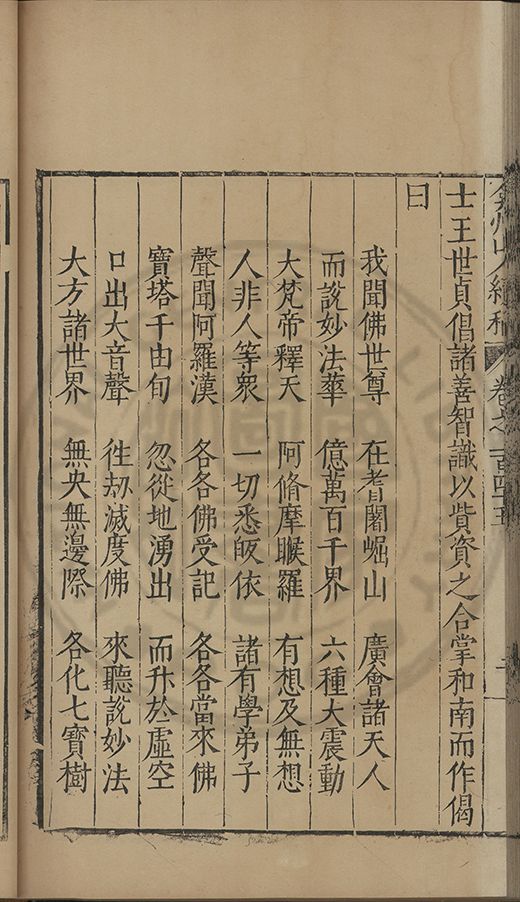 士王世貞倡諸善智識以貲資之合掌和南而作偈
曰
我聞佛世尊 在耆闍崛山 廣會諸天人
而說妙法華 億萬百千界 六種大震動
大梵帝釋天 阿脩摩睺羅 有想及無想
人非人等衆 一切悉皈依 諸有學弟子
聲聞阿羅漢 各各佛受記 各各當來佛
寶塔千由旬 忽從地湧出 而升於虛空
口出大音聲 徃劫滅度佛 來聽說妙法
大方諸世界 無央無邊際 各化七寶樹